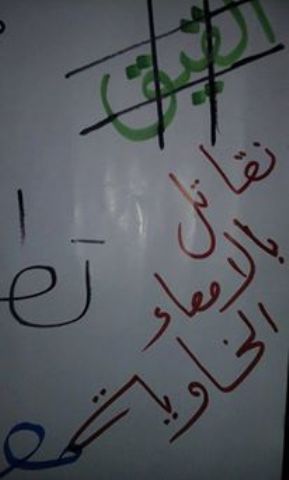 القيق
نقاتل
بالامعاء
الخاوية